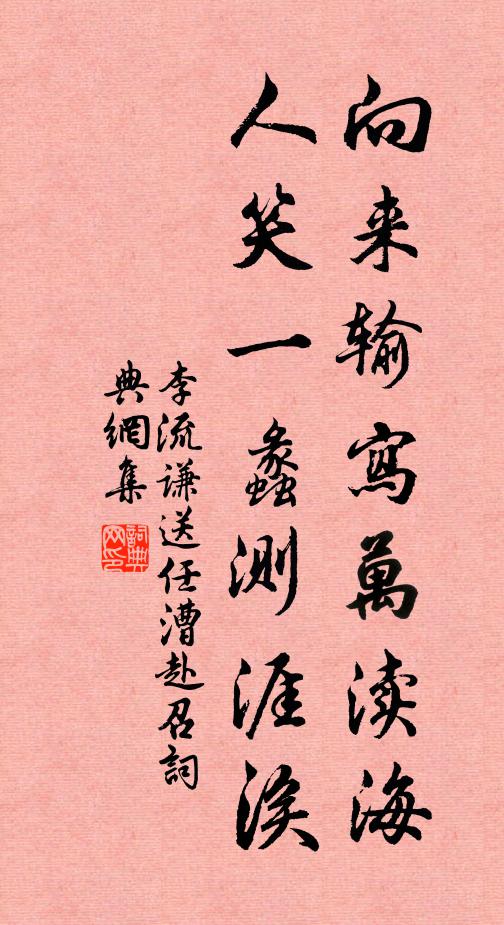 向来输寫萬渎海
人笑一蠡测涯涘
李流谦送任漕赴召詞
典網集
詞典
网印